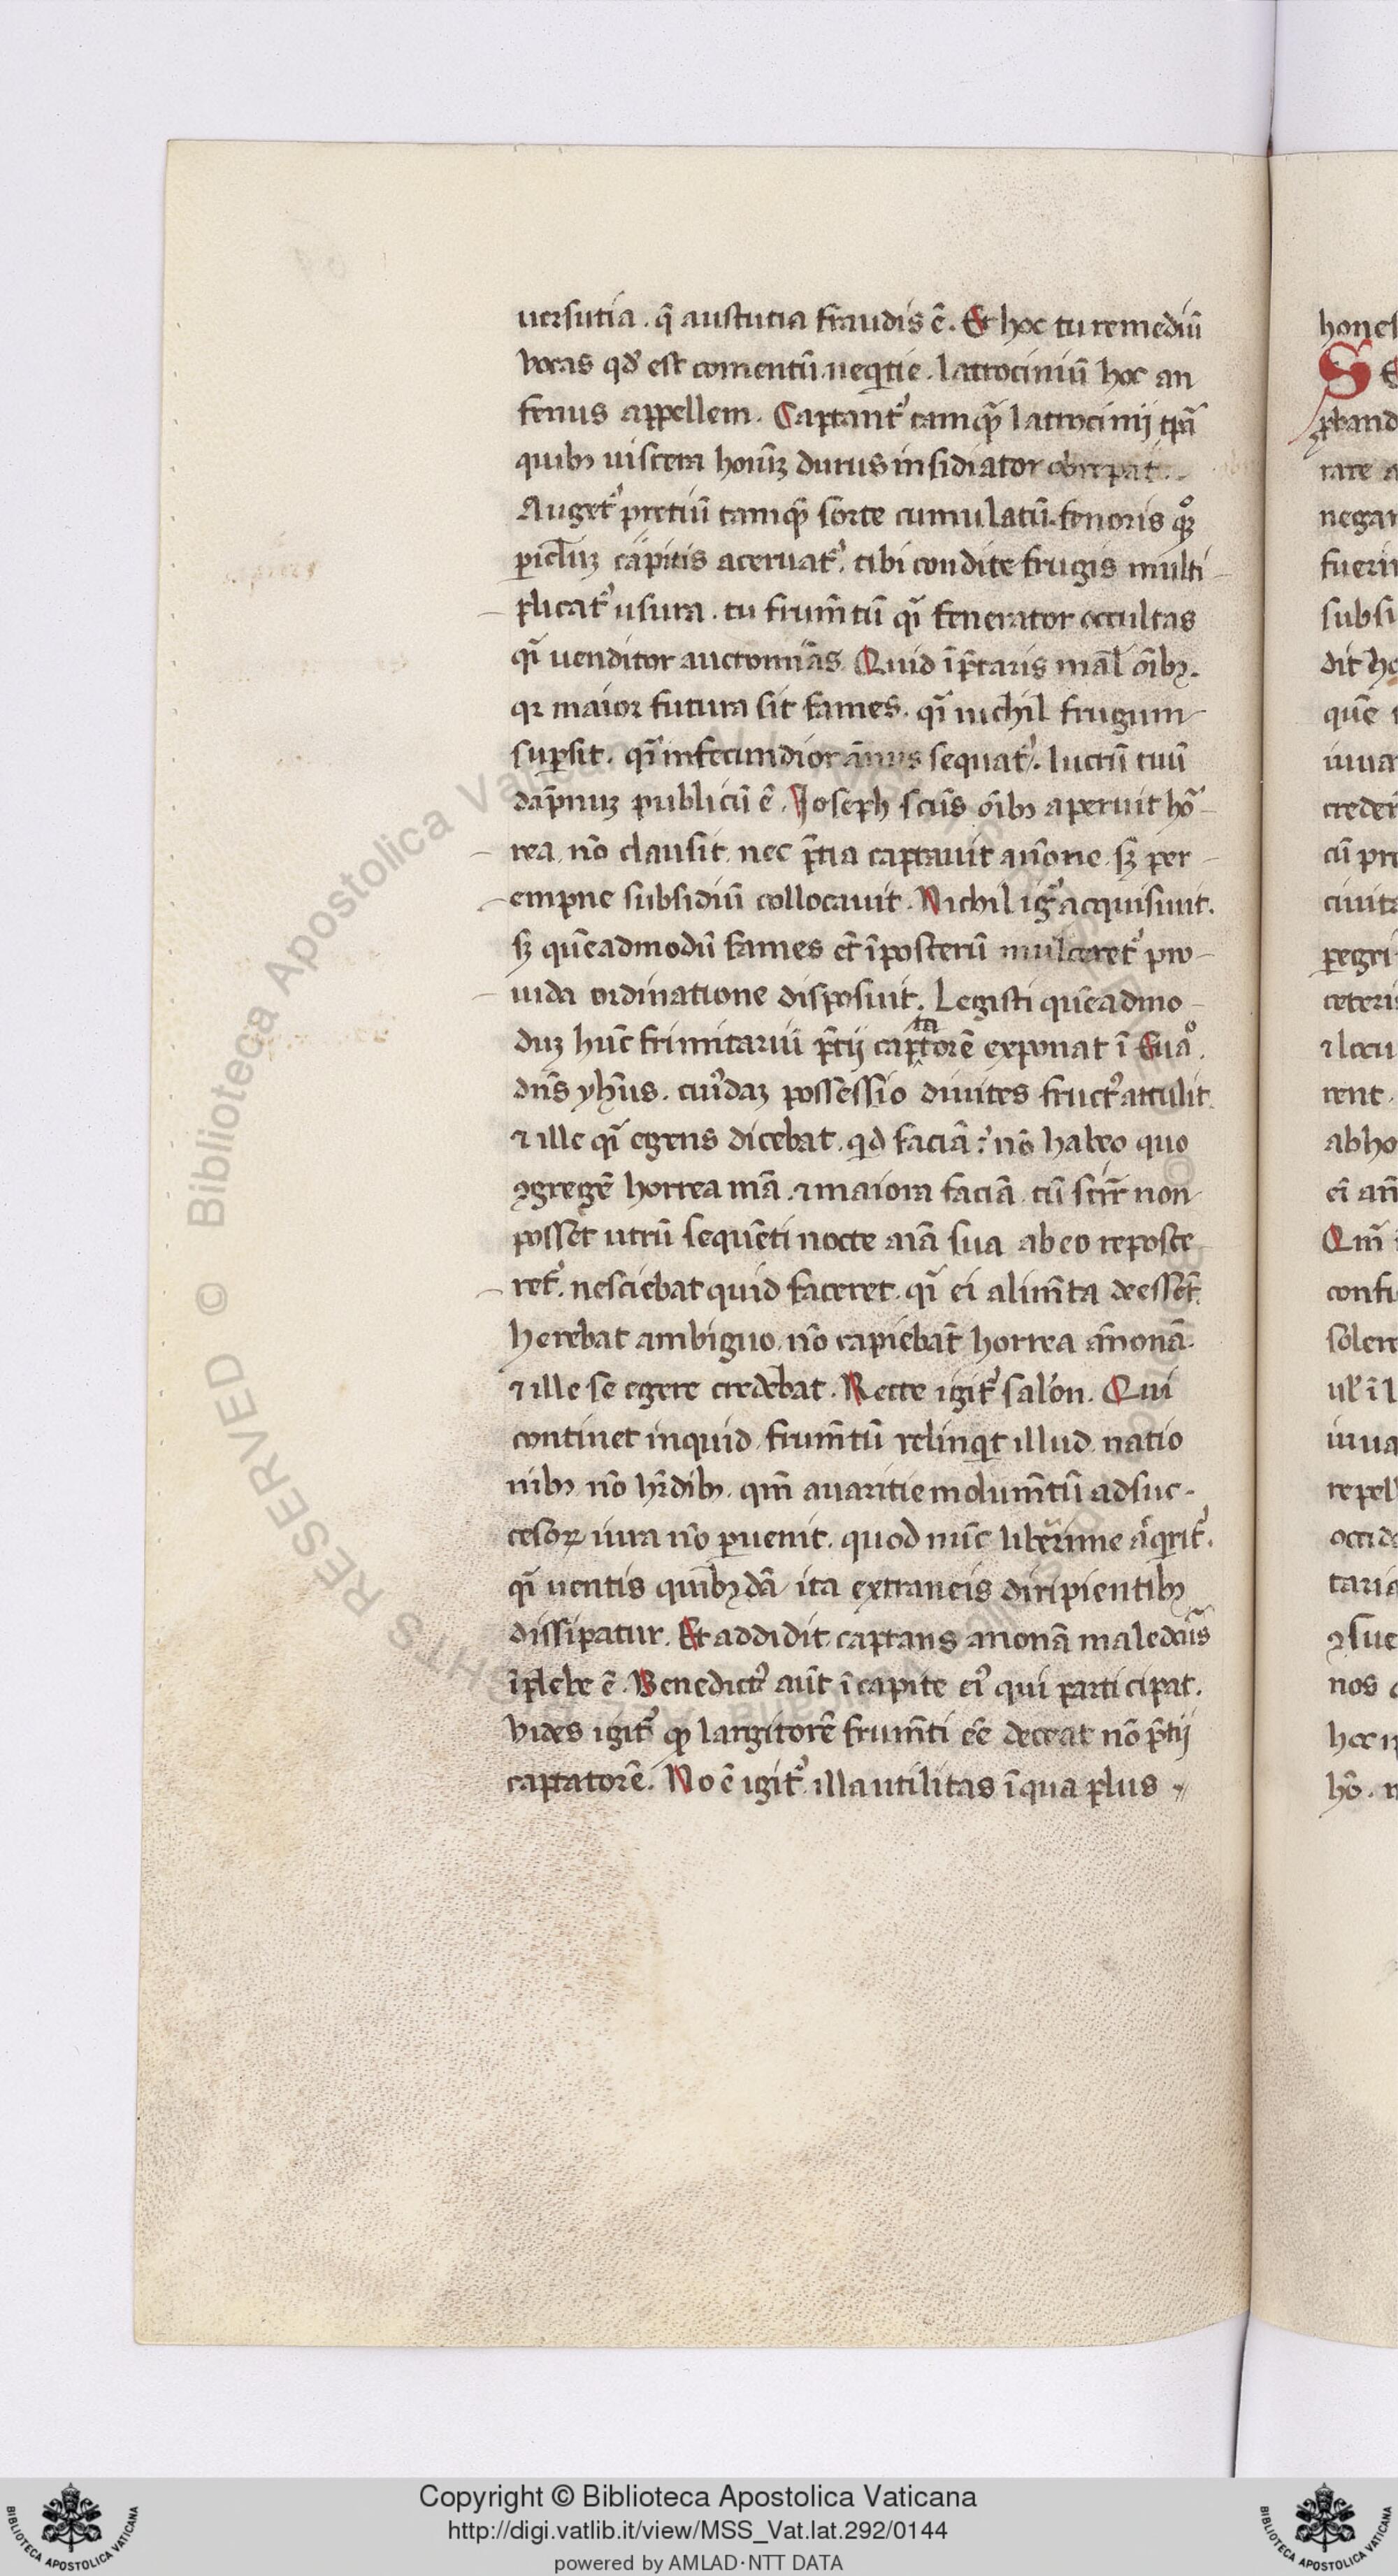 uersutia . q̄ austutia fraudis ē . Et hoc tu remediū
vocas qd̛ est comentū neq̇tie . latrociniū hoc an
fenus appellem . Captant᷒ tamqȝ̄ latrocinij tp̄a
quibȝ uiscera hoīuȝ durus insidiator obrepat .
Auget᷒ pretiū tamqȝ̄ sorte cumulatū fenoris qͦȝ
ꝑicl̄uȝ capitis aceruat᷒ . tibi condite frugis multi
plicat᷒ usura . tu frum̄tū qͣ̄ fenerator occultas
qͣ̄ uenditor auctonīas . Quid īp̄caris mal̄ oīb᷒ .
qꝛ maior futura sit fames . qͣ̄ nichil frugum
suꝑsit . qͣ̄ infecundior an̄us sequat᷒ . lucrū tuū
dāpnuȝ publicū ē . Joseph sc̄us oībȝ aperuit hoͣ
rea . nō clausit . nec p̄tia captauit an̄one . sȝ per
empne subsidiū collocauit . Nichil igͬ acquisiuit .
sȝ quēadmodū fames et̄ īposterū mulceret᷒ pro
uida ordinatione disposuit . Legisti quēadmo
duȝ hūc frumtariū p̄tij captatorē exponat ī Euaͦ .
dn̄s yh̄us . cui᷒daȝ possessio diuites fruct᷒ attulit .
⁊ ille qͣ̄ egens dicebat . qͥd faciā ? nō habeo quo
ꝯgregē horrea mā . ⁊ maiora faciā . cū scir̄ non
posset utrū sequēti nocte aīa sua ab eo reposce
ret᷒ . nesciebat quid faceret . qͣ̄ ei alim̄ta deesset̄ .
herebat ambiguo . nō capiebat̄ horrea an̄onā .
⁊ ille se egere credebat . Recte igit᷒ salōn . Qui
continet inquid frum̄tū relinqͥt illud natio
nibȝ nō hr̄dibȝ . qm̄ auaritie molum̄tū ad suc
cesoꝝ iura nō ꝑuenit . quod nūc liberime aͨqͥrit᷒ .
qͣ̄ uentis quibȝdā ita extraneis diripientibȝ
dissipatur . Et addidit captans anonā maledcūs
īplebe ē . Benedict᷒ aūt īcapite ei᷒ qui participat .
Vides igit᷒ qȝ largitorē frum̄ti eē deceat nō p̄tij
captatorē . No ē igit᷒ illa utilitas īqua plus
hones
S
negar
fuerin
subsi
dit ho
iuua
creder
ciuita
ceteri
⁊ locu
rent .
abho
Qm̄
confi
solere
iuua
repel
occid
taria
nos
Copyright © Biblioteca Apostolica Vaticana
http://digi.vatlib.it/view/MSS_Vat.lat.292/0144
powered by AMLAD·NTT DATA